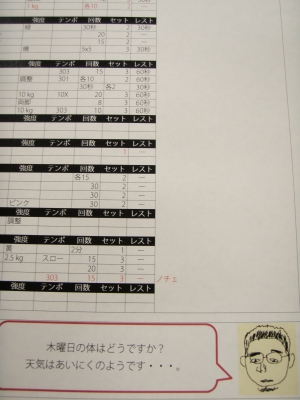 1 kg 各10
強度 テンポ 回数 セット レスト
緑 30秒 2 30秒
20 2 —
15 2 —
橋 5x5 3 30秒
強度 テンポ 回数 セット レスト
303 15 3 60秒
調整 301 各10 2 60秒
30秒 各2 30秒
10 kg 10X 20 3 60秒
両脚 8 3 60秒
10 kg 303 10 3 60秒
強度 テンポ 回数 セット レスト
強度 テンポ 回数 セット レスト
1
強度 テンポ 回数 セット レスト
各15 2 —
30 2 —
30 2 —
ピンク 30 2 —
強度 テンポ 回数 セット レスト
調整
強度 テンポ 回数 セット レスト
黄 2分 1 —
2.5 kg スロー 15 3 —
20 3 —
303 15 3 — ノチェ
強度 テンポ 回数 セット レスト
木曜日の体はどうですか？
天気はあいにくのようです・・・。